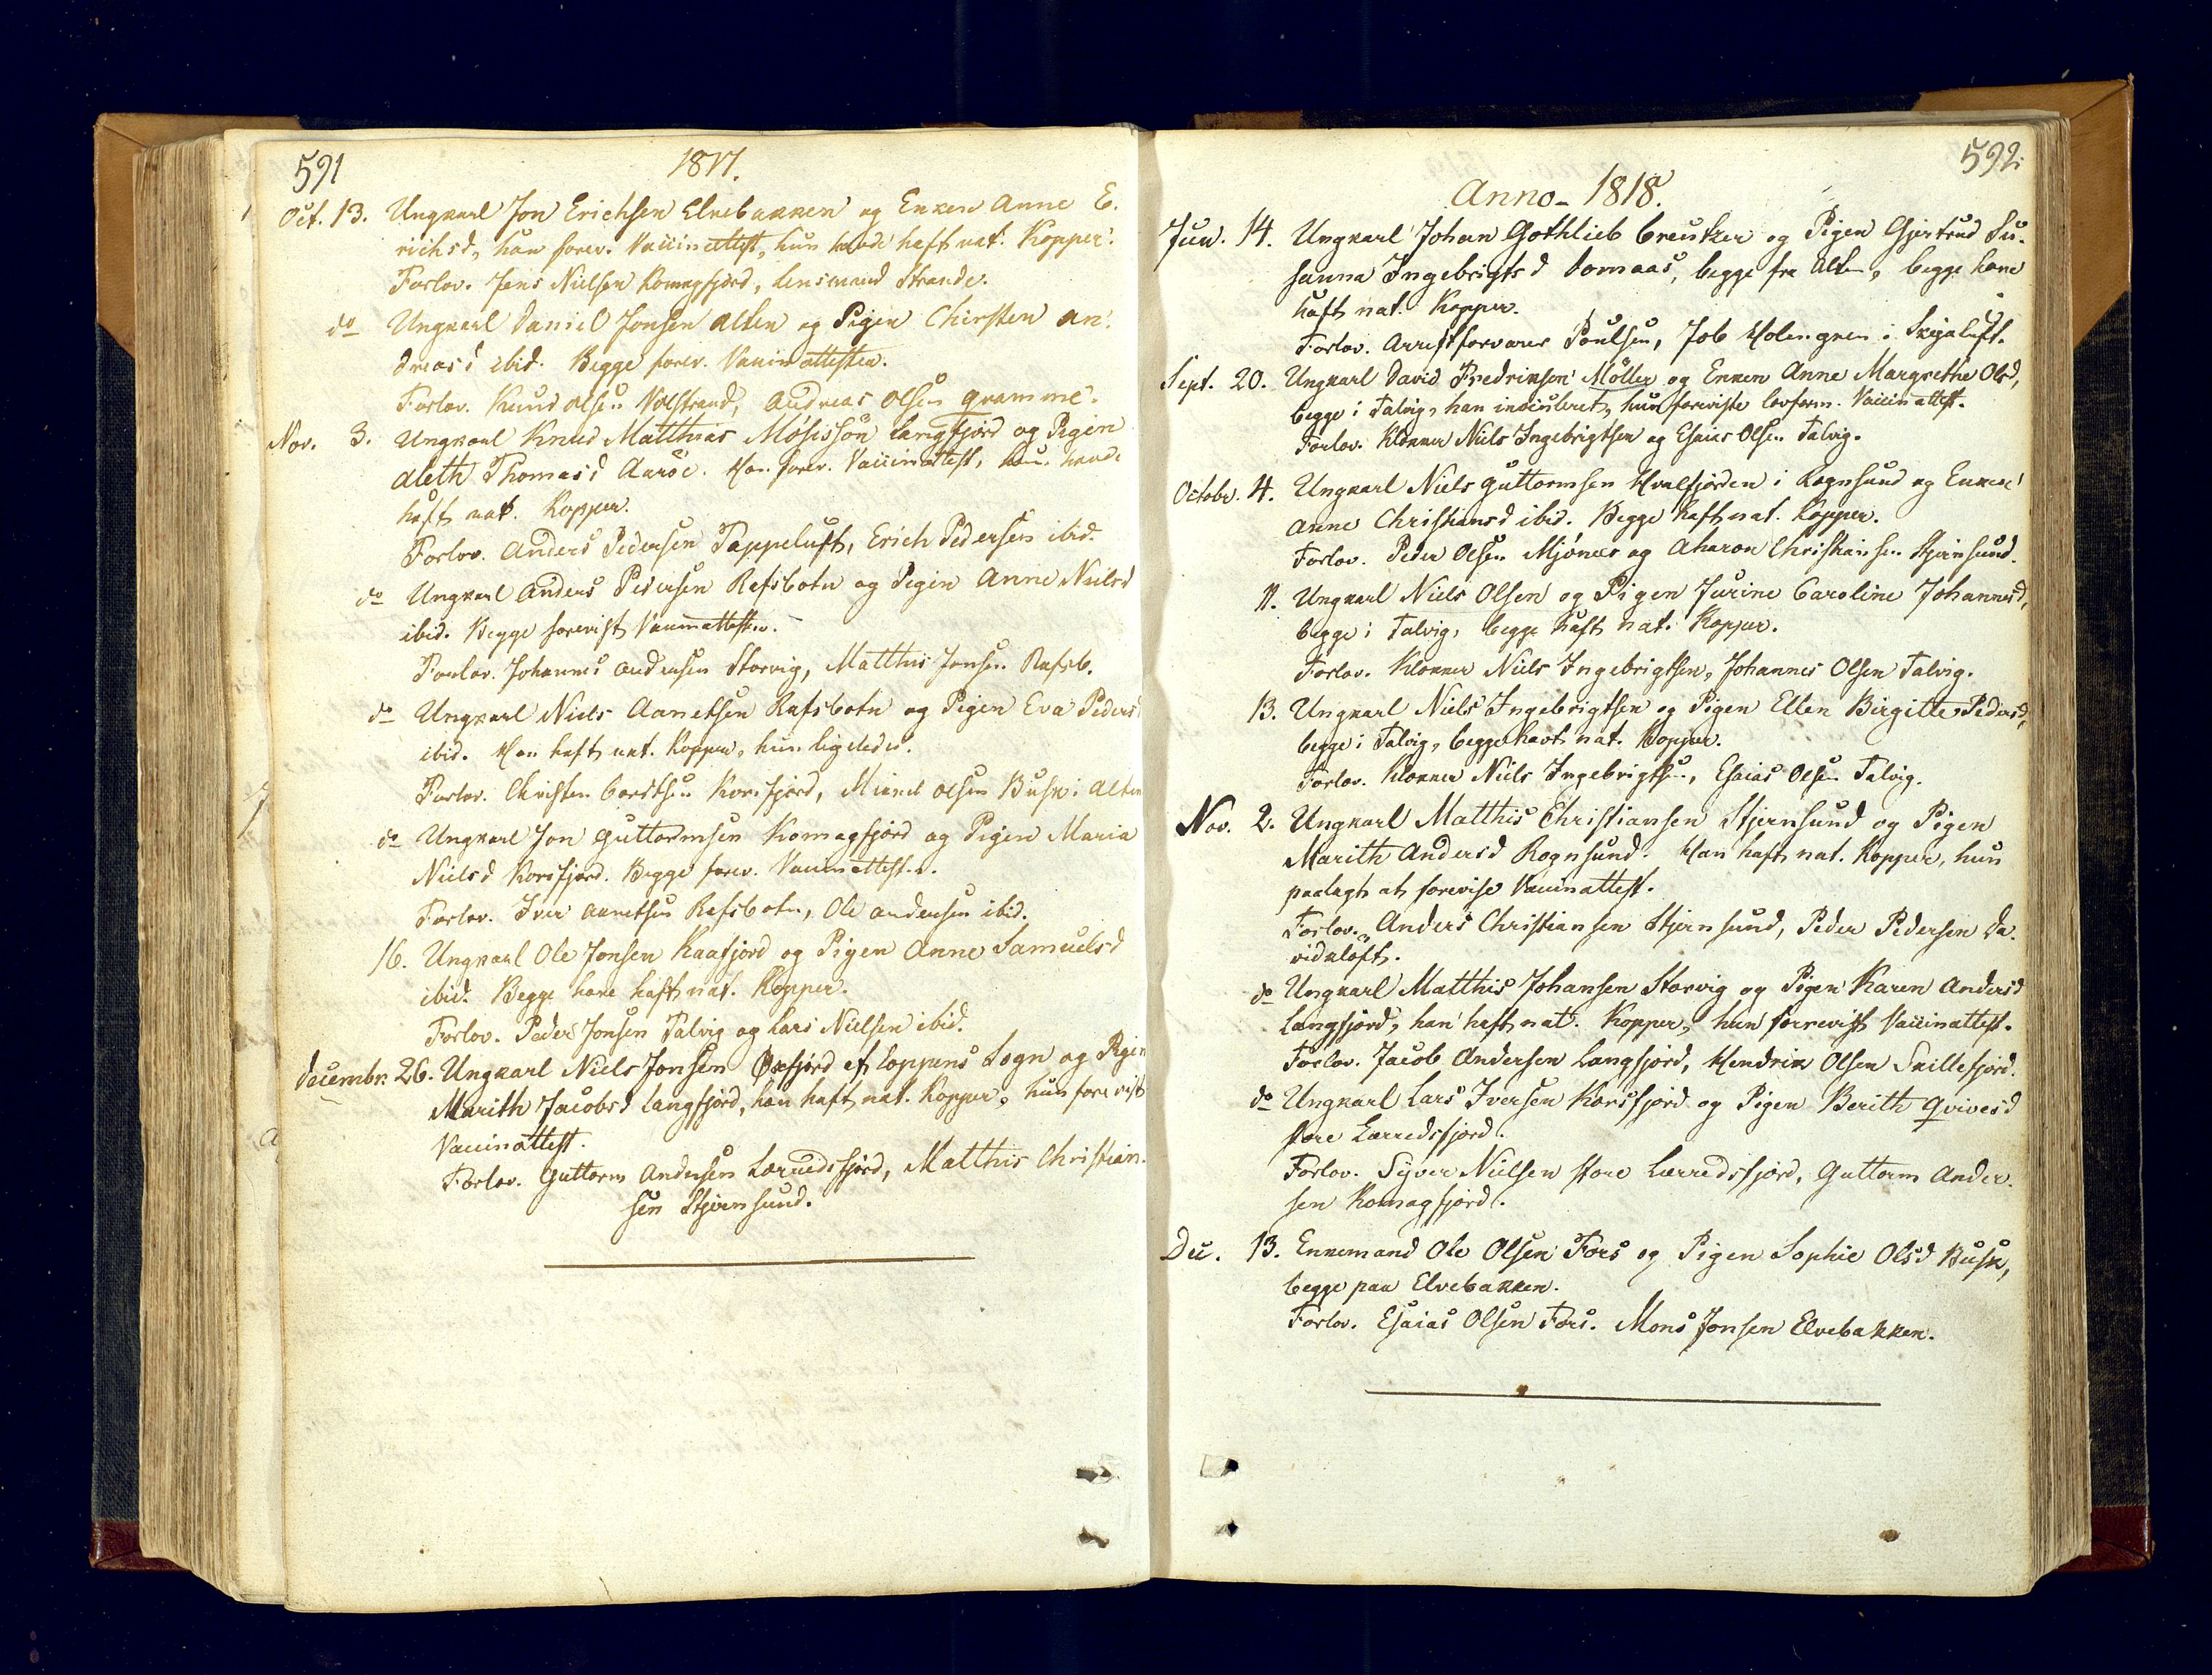 591
1817.
Oct. 13. Ungkarl Jon Erichsen Elvebakken og Enken Anne E-
richsd, han forev. Vaccinattest, hun havde haft nat. Kopper.
Forlov. Jens Nielsen Komagfjord, Lensmand Strande.
do Ungkarl Daniel Jonsen Alten og Pigen Chirsten An-
dreasd ibid. Begge forev. Vaccinattester.
Forlov. Knud Olsen Volstrand, Andreas Olsen Qvamme.
Nov. 3. Ungkarl Knud Matthias Mósissøn Langfjord og Pigen
Aleth Thomasd Aarøe. Han forev. Vaccinattest, hun havde
haft nat. Kopper.
Forlov. Anders Pedersen Tappeluft, Erich Pedersen ibid.
do Ungkarl Anders Pedersen Rafsbotn og Pigen Anne Nielsd
ibid. Begge forevist Vaccinattester.
Forlov. Johannes Andersen Storvig, Matthis Jonsen Rafsb.
do Ungkarl Niels Aanetsen Rafsbotn og Pigen Eva Pedersd
ibid. Han haft nat. Kopper, hun ligeledes.
Forlov. Christen Carstsen Korsfjord, Mickel Olsen Busk i Alten
do Ungkarl Jon Guttormsen Komagfjord og Pigen Maria
Nielsd Korsfjord. Begge forev. Vaccinattester.
Forlov. Iver Aanetsen Rafsbotn, Ole Andersen ibid.
16. Ungkarl Ole Jonsen Kaafjord og Pigen Anne Samuelsd
ibid. Begge have haft nat. Kopper.
Forlov. Peder Jonsen Talvig og Lars Nielsen ibid.
Decembr. 26. Ungkarl Niels Jonsen Øxfjord af Loppens Sogn og Pigen
Marith Jacobsd Langfjord, han haft nat. Kopper, hun forevist
Vaccinattest.
Forlov. Guttorm Andersen Lerredsfjord, Matthis Christian-
sen Stjernsund.
592.
Anno 1818.
Jun. 14. Ungkarl Johan Gothlieb Creutzer og Pigen Gjertrud Su-
sanna Ingebrigtsd Domaas, begge fra Alten, begge have
haft nat. Kopper.
Forlov. Arrestforvarer Poulsen, Job Holmgren i Skyaluft.
Sept. 20. Ungkarl David Fredriksen Møller og Enken Anne Margrethe Olsd,
begge i Talvig, han inoculeret, hun foreviste lovform. Vaccinattest.
Forlov. Klokker Niels Ingebrigtsen og Esaias Olsen Talvig.
Octobr. 4. Ungkarl Niels Guttormsen Hvalfjorden i Rognsund og Enken
Anne Christiansd ibid. Begge haft nat. Kopper.
Forlov. Peder Olsen Mjónæs og Aharon Christiansen Stjernsund.
11. Ungkarl Niels Olsen og Pigen Jurine Caroline Johannesd,
begge i Talvig, begge haft nat. Kopper.
Forlov. Klokker Niels Ingebrigtsen, Johannes Olsen Talvig.
13. Ungkarl Niels Ingebrigtsen og Pigen Ellen Birgitte Pedersd,
begge i Talvig, begge havt nat. Kopper.
Forlov. Klokker Niels Ingebrigtsen, Esaias Olsen Talvig.
Nov. 2. Ungkarl Matthis Christiansen Stjernsund og Pigen
Marith Andersd Rognsund. Han haft nat. Kopper, hun
paalagt at forevise Vaccinattest.
Forlov. Anders Christiansen Stjernsund, Peder Pedersen Da-
vidkløft.
do Ungkarl Matthis Johansen Storvig og Pigen Karen Andersd
Langfjord, han haft nat. Kopper, hun forrevist Vaccinattest.
Forlov. Jacob Andersen Langfjord, Hendrik Olsen Skillefjord.
do Ungkarl Lars Iversen Korsfjord og Pigen Berith Qvivesd
store Lerredsfjord.
Forlov. Syver Nielsen store Lerredsfjord, Guttorm Ander-
sen Komagfjord.
Dec. 13. Enkemand Ole Olsen Fors og Pigen Sophie Olsd Busk,
begge paa Elvebakken.
Forlov. Esaias Olsen Fors. Mons Jonsen Elvebakken.